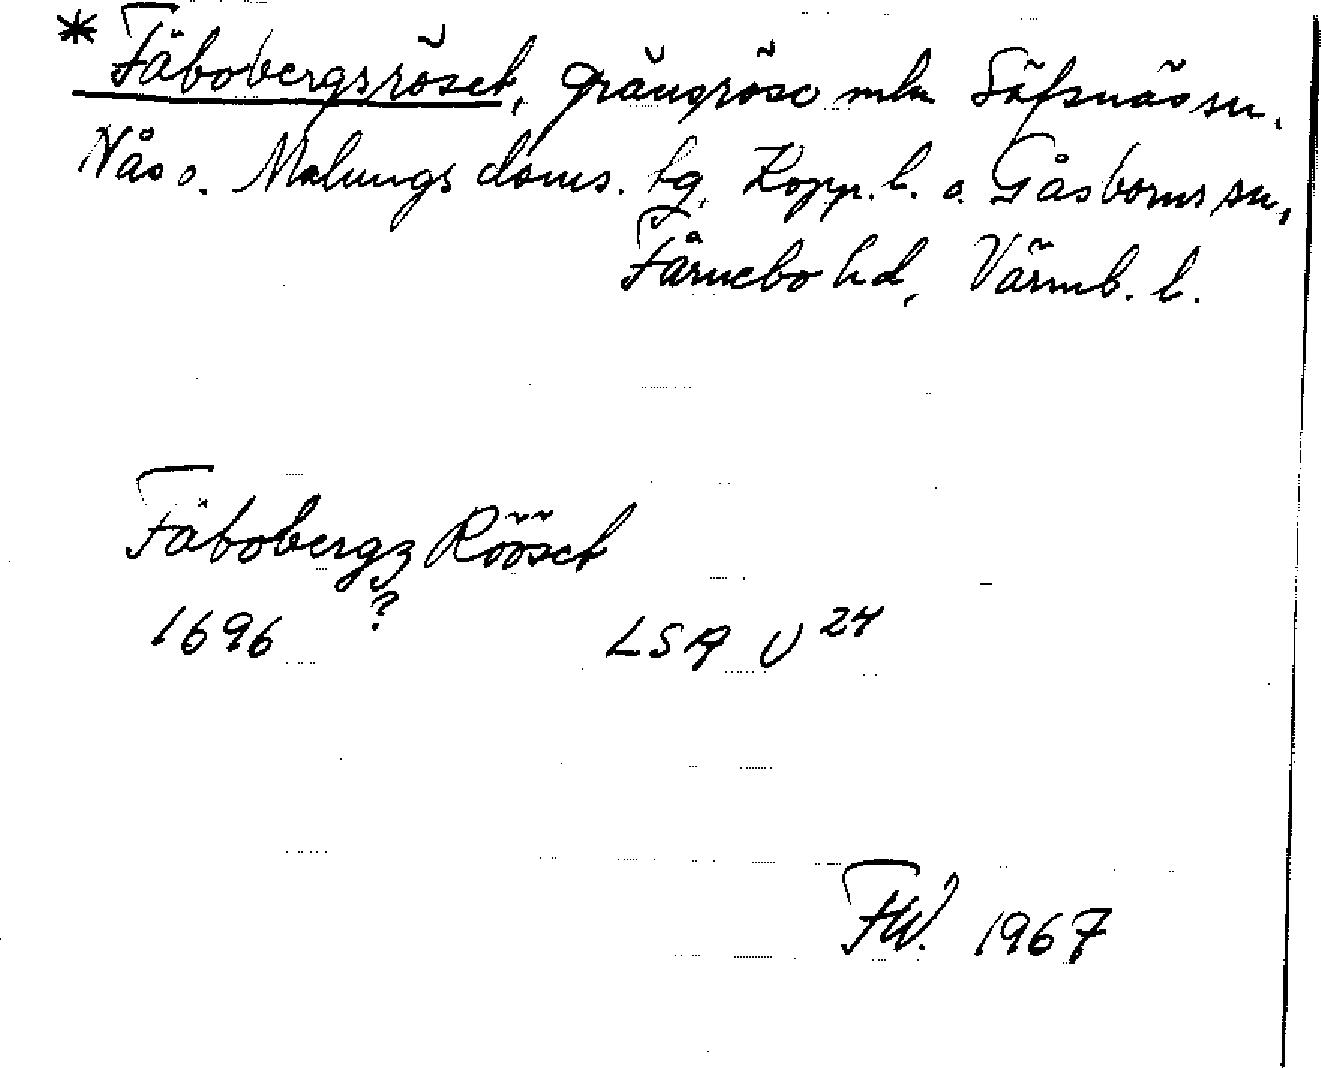 * Fäbobergsröset, gränsröse mln Säfsnäs sn,
Nås o. Malungs doms. tg, Kopp. l. o. Gåsborns sn,
Färnebo hd, Värml. l.
Fäbobergz Rööset
1696 ? LSA U 24
FW. 1967